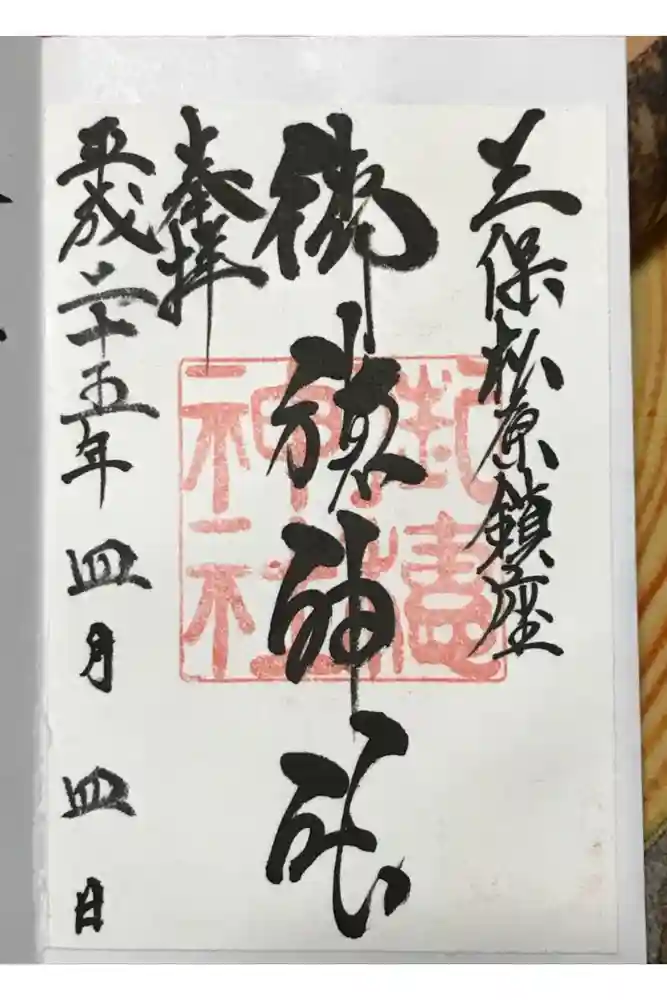 三保松原鎮座
御穂神社
奉拝
平成二十五年四月四日
御穂神社